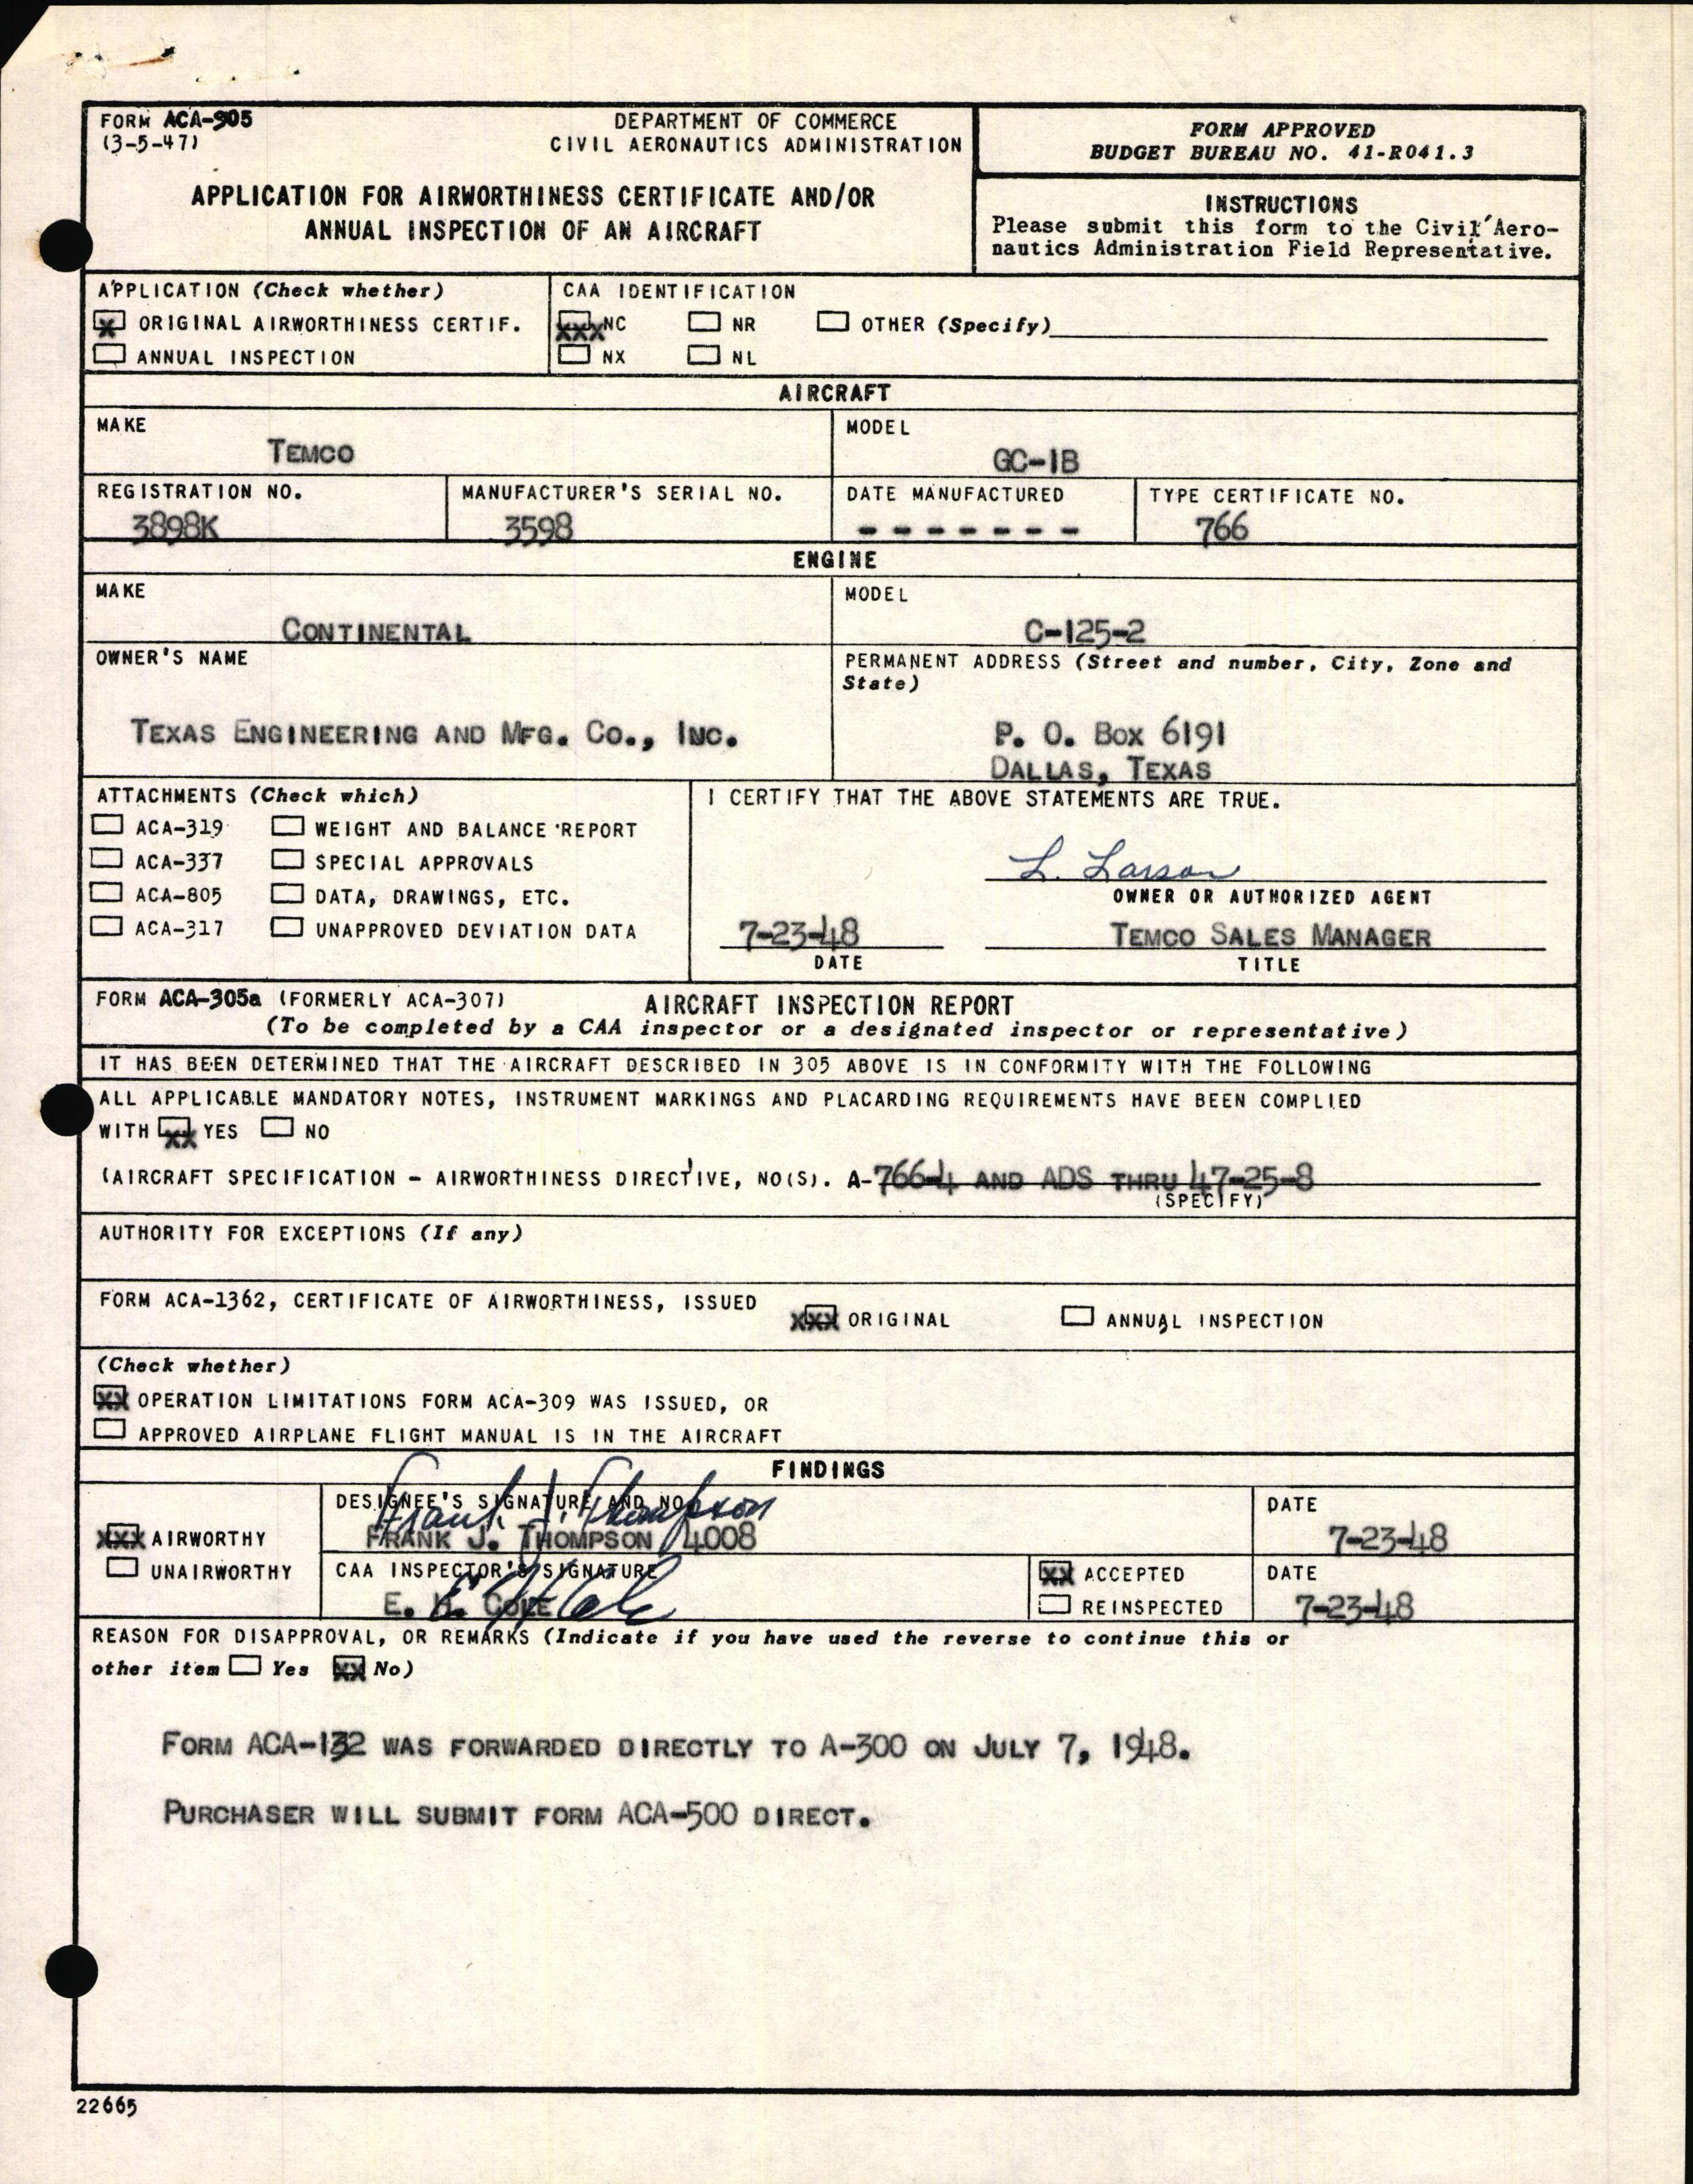 FORM ACA-305
(3-5-47)
DEPARTMENT OF COMMERCE
CIVIL AERONAUTICS ADMINISTRATION
APPLICATION FOR AIRWORTHINESS CERTIFICATE AND/OR
ANNUAL INSPECTION OF AN AIRCRAFT
FORM APPROVED
BUDGET BUREAU NO. 41-R041.3
INSTRUCTIONS
Please submit this form to the Civil Aero-
nautics Administration Field Representative.
APPLICATION (Check whether)
X ORIGINAL AIRWORTHINESS CERTIF.
ANNUAL INSPECTION
CAA IDENTIFICATION
XXX NC NR OTHER (Specify)
NX NL
AIRCRAFT
MAKE
TEMCO
MODEL
GC-1B
REGISTRATION NO.
3898K
MANUFACTURER'S SERIAL NO.
3598
DATE MANUFACTURED
- - - - - - -
TYPE CERTIFICATE NO.
766
ENGINE
MAKE
CONTINENTAL
MODEL
C-125-2
OWNER'S NAME
TEXAS ENGINEERING AND MFG. CO., INC.
PERMANENT ADDRESS (Street and number, City, Zone and
State)
P. O. BOX 6191
DALLAS, TEXAS
ATTACHMENTS (Check which)
ACA-319 WEIGHT AND BALANCE REPORT
ACA-337 SPECIAL APPROVALS
ACA-805 DATA, DRAWINGS, ETC.
ACA-317 UNAPPROVED DEVIATION DATA
I CERTIFY THAT THE ABOVE STATEMENTS ARE TRUE.
L. Larson
OWNER OR AUTHORIZED AGENT
7-23-48 TEMCO SALES MANAGER
DATE TITLE
FORM ACA-305a (FORMERLY ACA-307) AIRCRAFT INSPECTION REPORT
(To be completed by a CAA inspector or a designated inspector or representative)
IT HAS BEEN DETERMINED THAT THE AIRCRAFT DESCRIBED IN 305 ABOVE IS IN CONFORMITY WITH THE FOLLOWING
ALL APPLICABLE MANDATORY NOTES, INSTRUMENT MARKINGS AND PLACARDING REQUIREMENTS HAVE BEEN COMPLIED
WITH XX YES NO
(AIRCRAFT SPECIFICATION - AIRWORTHINESS DIRECTIVE, NO(S). A-766-4 AND ADS THRU 47-25-8
(SPECIFY)
AUTHORITY FOR EXCEPTIONS (If any)
FORM ACA-1362, CERTIFICATE OF AIRWORTHINESS, ISSUED XXX ORIGINAL ANNUAL INSPECTION
(Check whether)
XX OPERATION LIMITATIONS FORM ACA-309 WAS ISSUED, OR
APPROVED AIRPLANE FLIGHT MANUAL IS IN THE AIRCRAFT
FINDINGS
XXX AIRWORTHY
UNAIRWORTHY
DESIGNEE'S SIGNATURE AND NO.
Frank J. Thompson
FRANK J. THOMPSON 4008
DATE
7-23-48
CAA INSPECTOR'S SIGNATURE
E. H. COLE
E H Cole
XX ACCEPTED
REINSPECTED
DATE
7-23-48
REASON FOR DISAPPROVAL, OR REMARKS (Indicate if you have used the reverse to continue this or
other item Yes XX No)
FORM ACA-132 WAS FORWARDED DIRECTLY TO A-300 ON JULY 7, 1948.
PURCHASER WILL SUBMIT FORM ACA-500 DIRECT.
22665